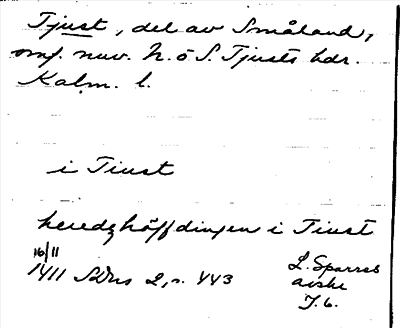 Tjust, del av Småland,
omf. nuv. N. o S. Tjusts hdr.
Kalm. l.
i Tiust
heredzhöffdingen i Tiust
16/11
1411 SDns 2, s. 443
L. Sparres
arske
T. 6.